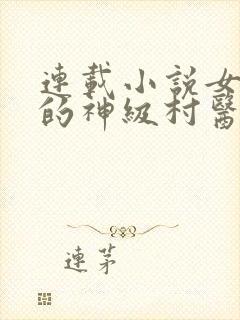 連載小說女
的神級村醫
連茅